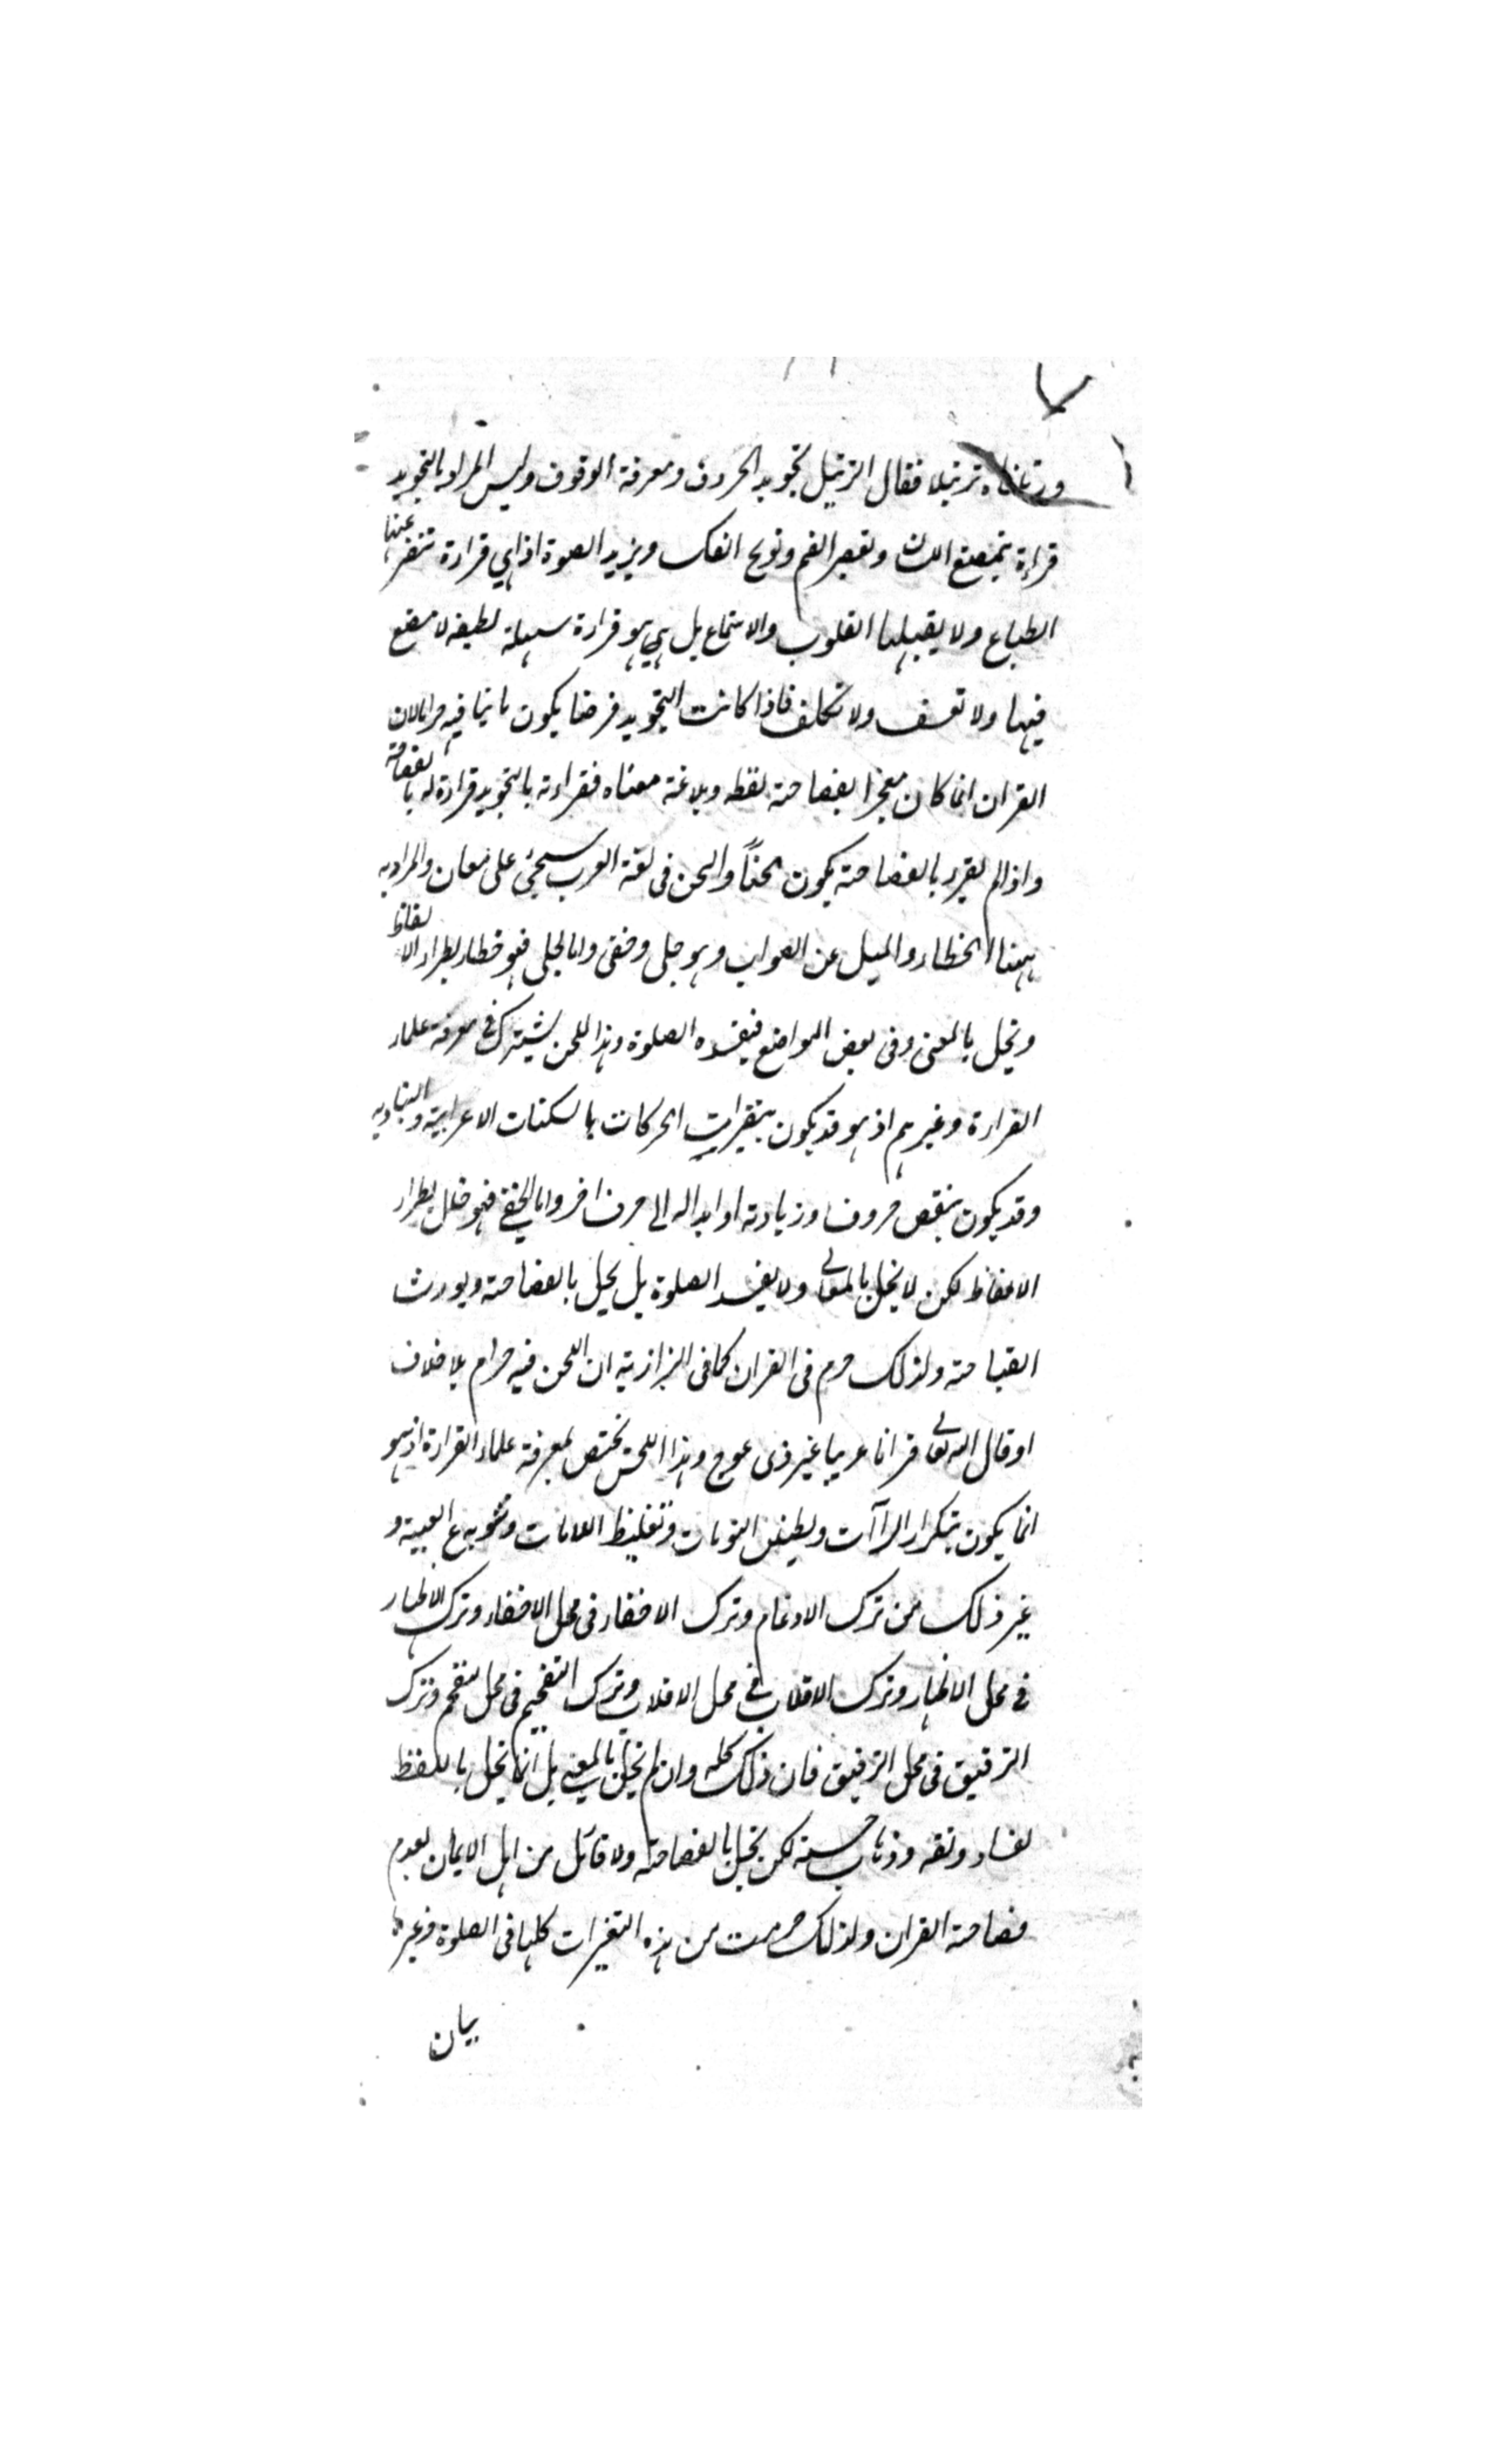 ورتلناه ترتيلا فقال الترتيل تجويد الحروف ومعرفة الوقوف وليس المراد بالتجويد
قراءة بتمضيغ اللسان وتقعير الفم وتعويج الفك وترعيد الصوة اذ هي قراءة تنفر عنها
الطباع ولا يقبلها القلوب والاسماع بل هي هو قراءة سهلة لطيفة لا مضغ
فيها ولا تعسف ولا تكلف فاذا كانت التجويد فرضا يكون ما ينافيه حراما لان
القران انما كان معجزا بفصاحته لفظه وبلاغة معناه فقراءته بالتجويد قراءة له بالفصاحة
واذا لم يقرء بالفصاحته يكون لحنًا واللحن فى لغة العرب سيجئ على معان والمراد به
ههنا الخطاء والميل عن الصواب وهو جلى وخفى واما الجلى فهو خطاء يطرء الالفاظ
ويخل بالمعنى وفى بعض المواضع فيفسده الصلوة وهذا اللحن يشترك فى معرفته علماء
القراءة وغيرهم اذ هو قد يكون بتغيرات الحركات بالسكنات الاعرابية والبنائية
وقد يكون بنقص حروف وزيادته او ابداله الى حرف اخر واما الخفى فهو خلل يطرء
الالفاظ لكن لا يخل بالمعانى ولا يفسد الصلوة بل يخل بالفصاحته ويورث
القباحته ولذلك حرم فى القران كما فى البزازية ان اللحن فيه حرام بلا خلاف
او قال الله تعالى قرانا عربيا غير ذى عوج وهذا اللحن يختص بمعرفة علماء القراءة اذ هو
انما يكون بتكرار الراآت وتطنين النونات وتغليظ اللامات وتشويهع العيبة و
غير ذلك من ترك الادغام وترك الاخفاء فى محل الاخفاء وترك الاظهار
فى محل الاظهار وترك الاقلاب فى محل الاقلاب وترك التفخيم فى محل تفخم وترك
الترقيق فى محل الترقيق فان ذلك كله وان لم يخل بالمعنى بل انما يخل باللفظ
لفساد رونقه وذهاب حسنه لكن يخل بالفصاحته ولا قائل من اهل الايمان بعدم
فصاحته القران ولذلك حرمت من هذه التغيرات كلها فى الصلوة وغيرها
بيان